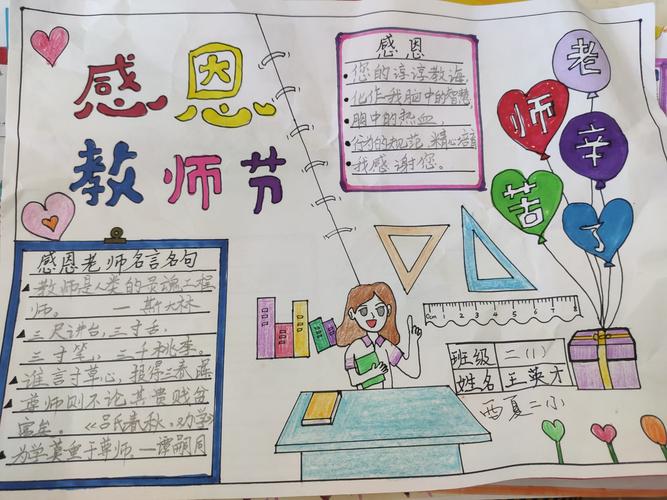 感恩
教师节
感恩老师名言名句
教师是人类的灵魂工程
师。 — 斯大林
三尺讲台,三寸舌,
三寸笔,三千桃李。
谁言寸草心,报得三春晖
尊师则不论其贵贱贫
富矣。《吕氏春秋·劝学
为学莫重于尊师—谭嗣同
感恩
您的谆谆教诲,
化作我脑中的智慧,
胸中的热血,
行为的规范,精心培育
我感谢您。
老
师
辛
苦
了
Cm 1 2 3 4 5 6 7 8
班级 二(1)
姓名 王英才
西夏二小